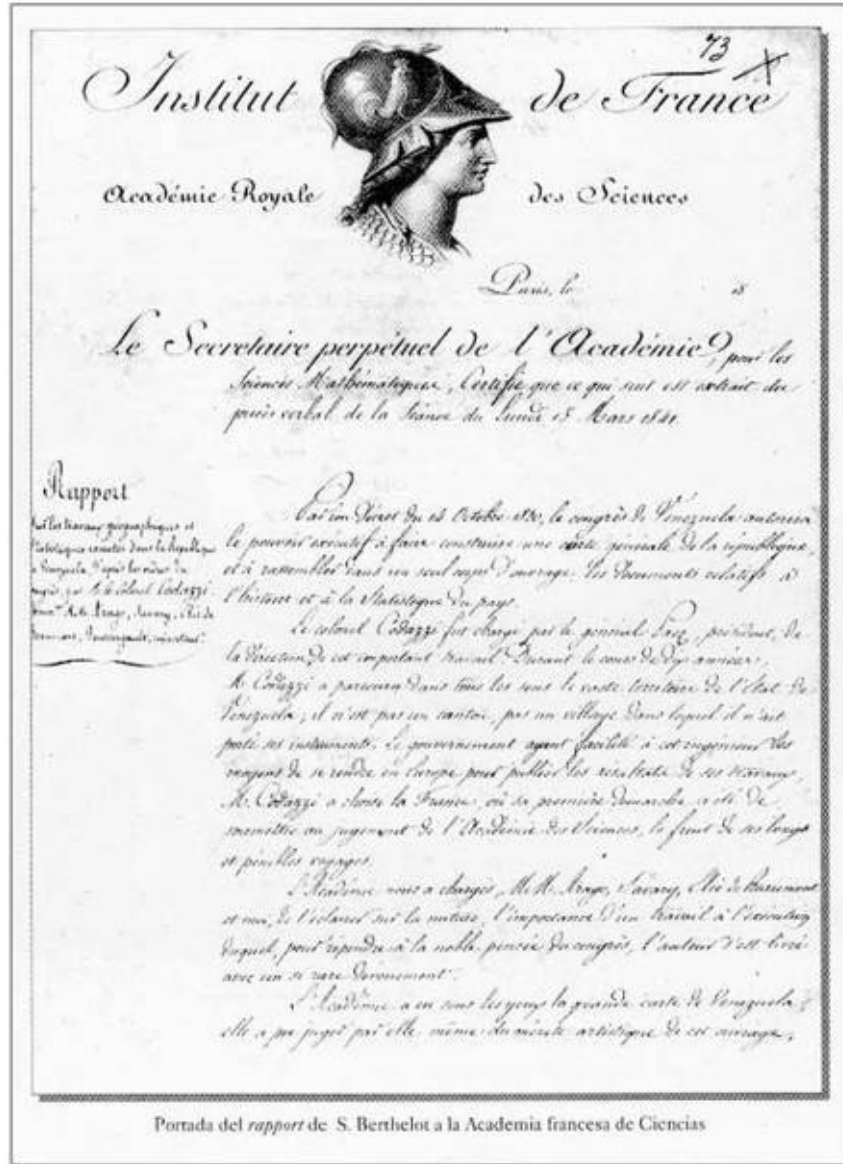 73
Institut de France
Académie Royale des Sciences
Paris, le 18
Le Secrétaire perpétuel de l'Académie, pour les
Sciences Mathématiques, Certifie que ce qui suit est extrait du
procès verbal de la Séance du Lundi 15 Mars 1841.
Rapport
Sur les travaux géographiques et
Statistiques exécutés dans la République
de Venezuela, d'après les ordres du
congrès, par M. le Colonel Codazzi.
MM. Arago, Savary, Elie de
Beaumont, Boussingault, rapporteur
Par un Décret du 14 Octobre 1830, le congrès de Venezuela autorisa
le pouvoir exécutif à faire construire une carte générale de la république,
et à rassembler dans un seul corps d'ouvrage les documents relatifs à
l'histoire et à la Statistique du pays.
Le colonel Codazzi fut chargé par le général Paez, président, de
la direction de cet important travail. Durant le cours de dix années,
M. Codazzi a parcouru dans tous les sens le vaste territoire de l'État de
Venezuela; il n'est pas un canton, pas un village dans lequel il n'ait
porté ses instruments. Le gouvernement ayant facilité à cet ingénieur les
moyens de se rendre en Europe pour publier les résultats de ses travaux,
M. Codazzi a choisi la France, où sa première démarche a été de
soumettre au jugement de l'Académie des Sciences, le fruit de ses longs
et pénibles voyages.
L'Académie nous a chargés, MM. Arago, Savary, Elie de Beaumont
et moi, de l'éclairer sur la nature, l'importance d'un travail à l'exécution
duquel, pour répondre à la noble pensée du congrès, l'auteur s'est livré
avec un si rare dévouement.
L'Académie a eu sous les yeux la grande carte de Venezuela;
elle a pu juger par elle même du mérite artistique de cet ouvrage,
Portada del rapport de S. Berthelot a la Academia francesa de Ciencias